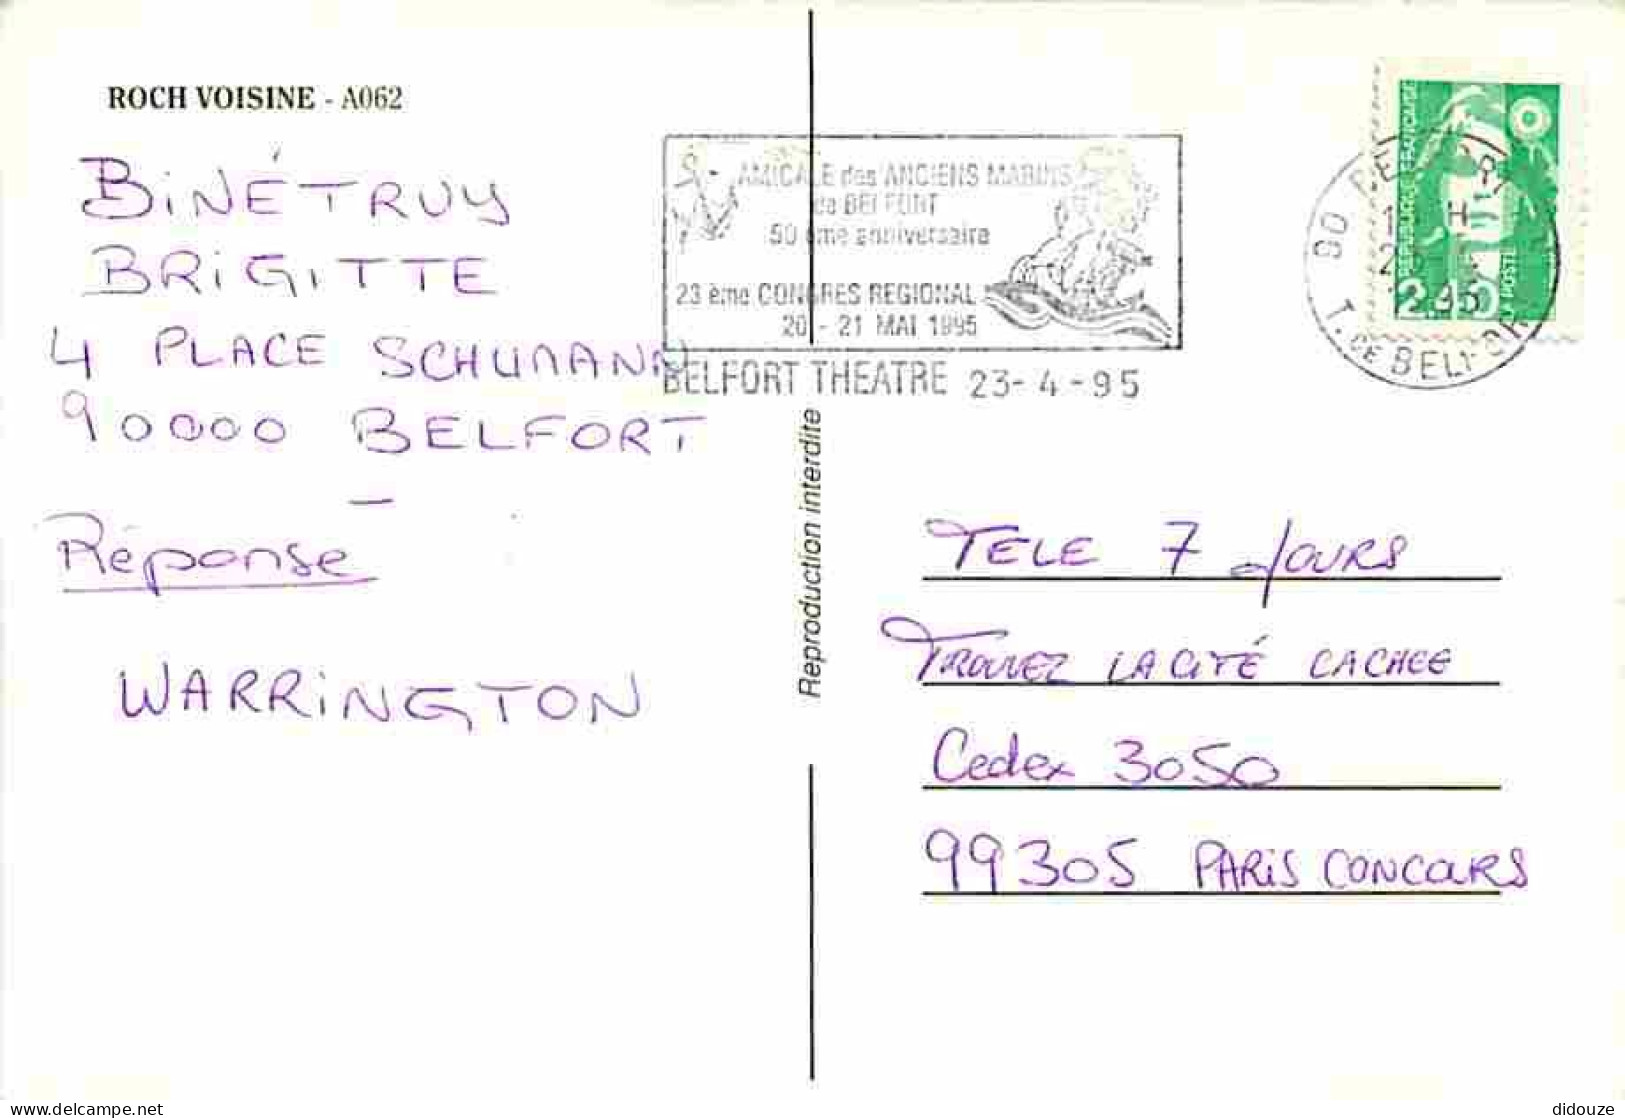 ROCH VOISINE - A062
BINÉTRUY
BRIGITTE
4 PLACE SCHUMANN
90000 BELFORT
—
Réponse
WARRINGTON
AMICALE des ANCIENS MARINS
de BELFORT
50 ème anniversaire
23 ème CONGRES REGIONAL
20 - 21 MAI 1995
BELFORT THEATRE 23-4-95
Reproduction interdite
REPUBLIQUE FRANCAISE
LA POSTE
90 BELFORT
T. DE BELFORT
TELE 7 JOURS
TROUVEZ LA CITÉ CACHEE
Cedex 3050
99305 PARIS CONCOURS
https://www.delcampe.net
didouze